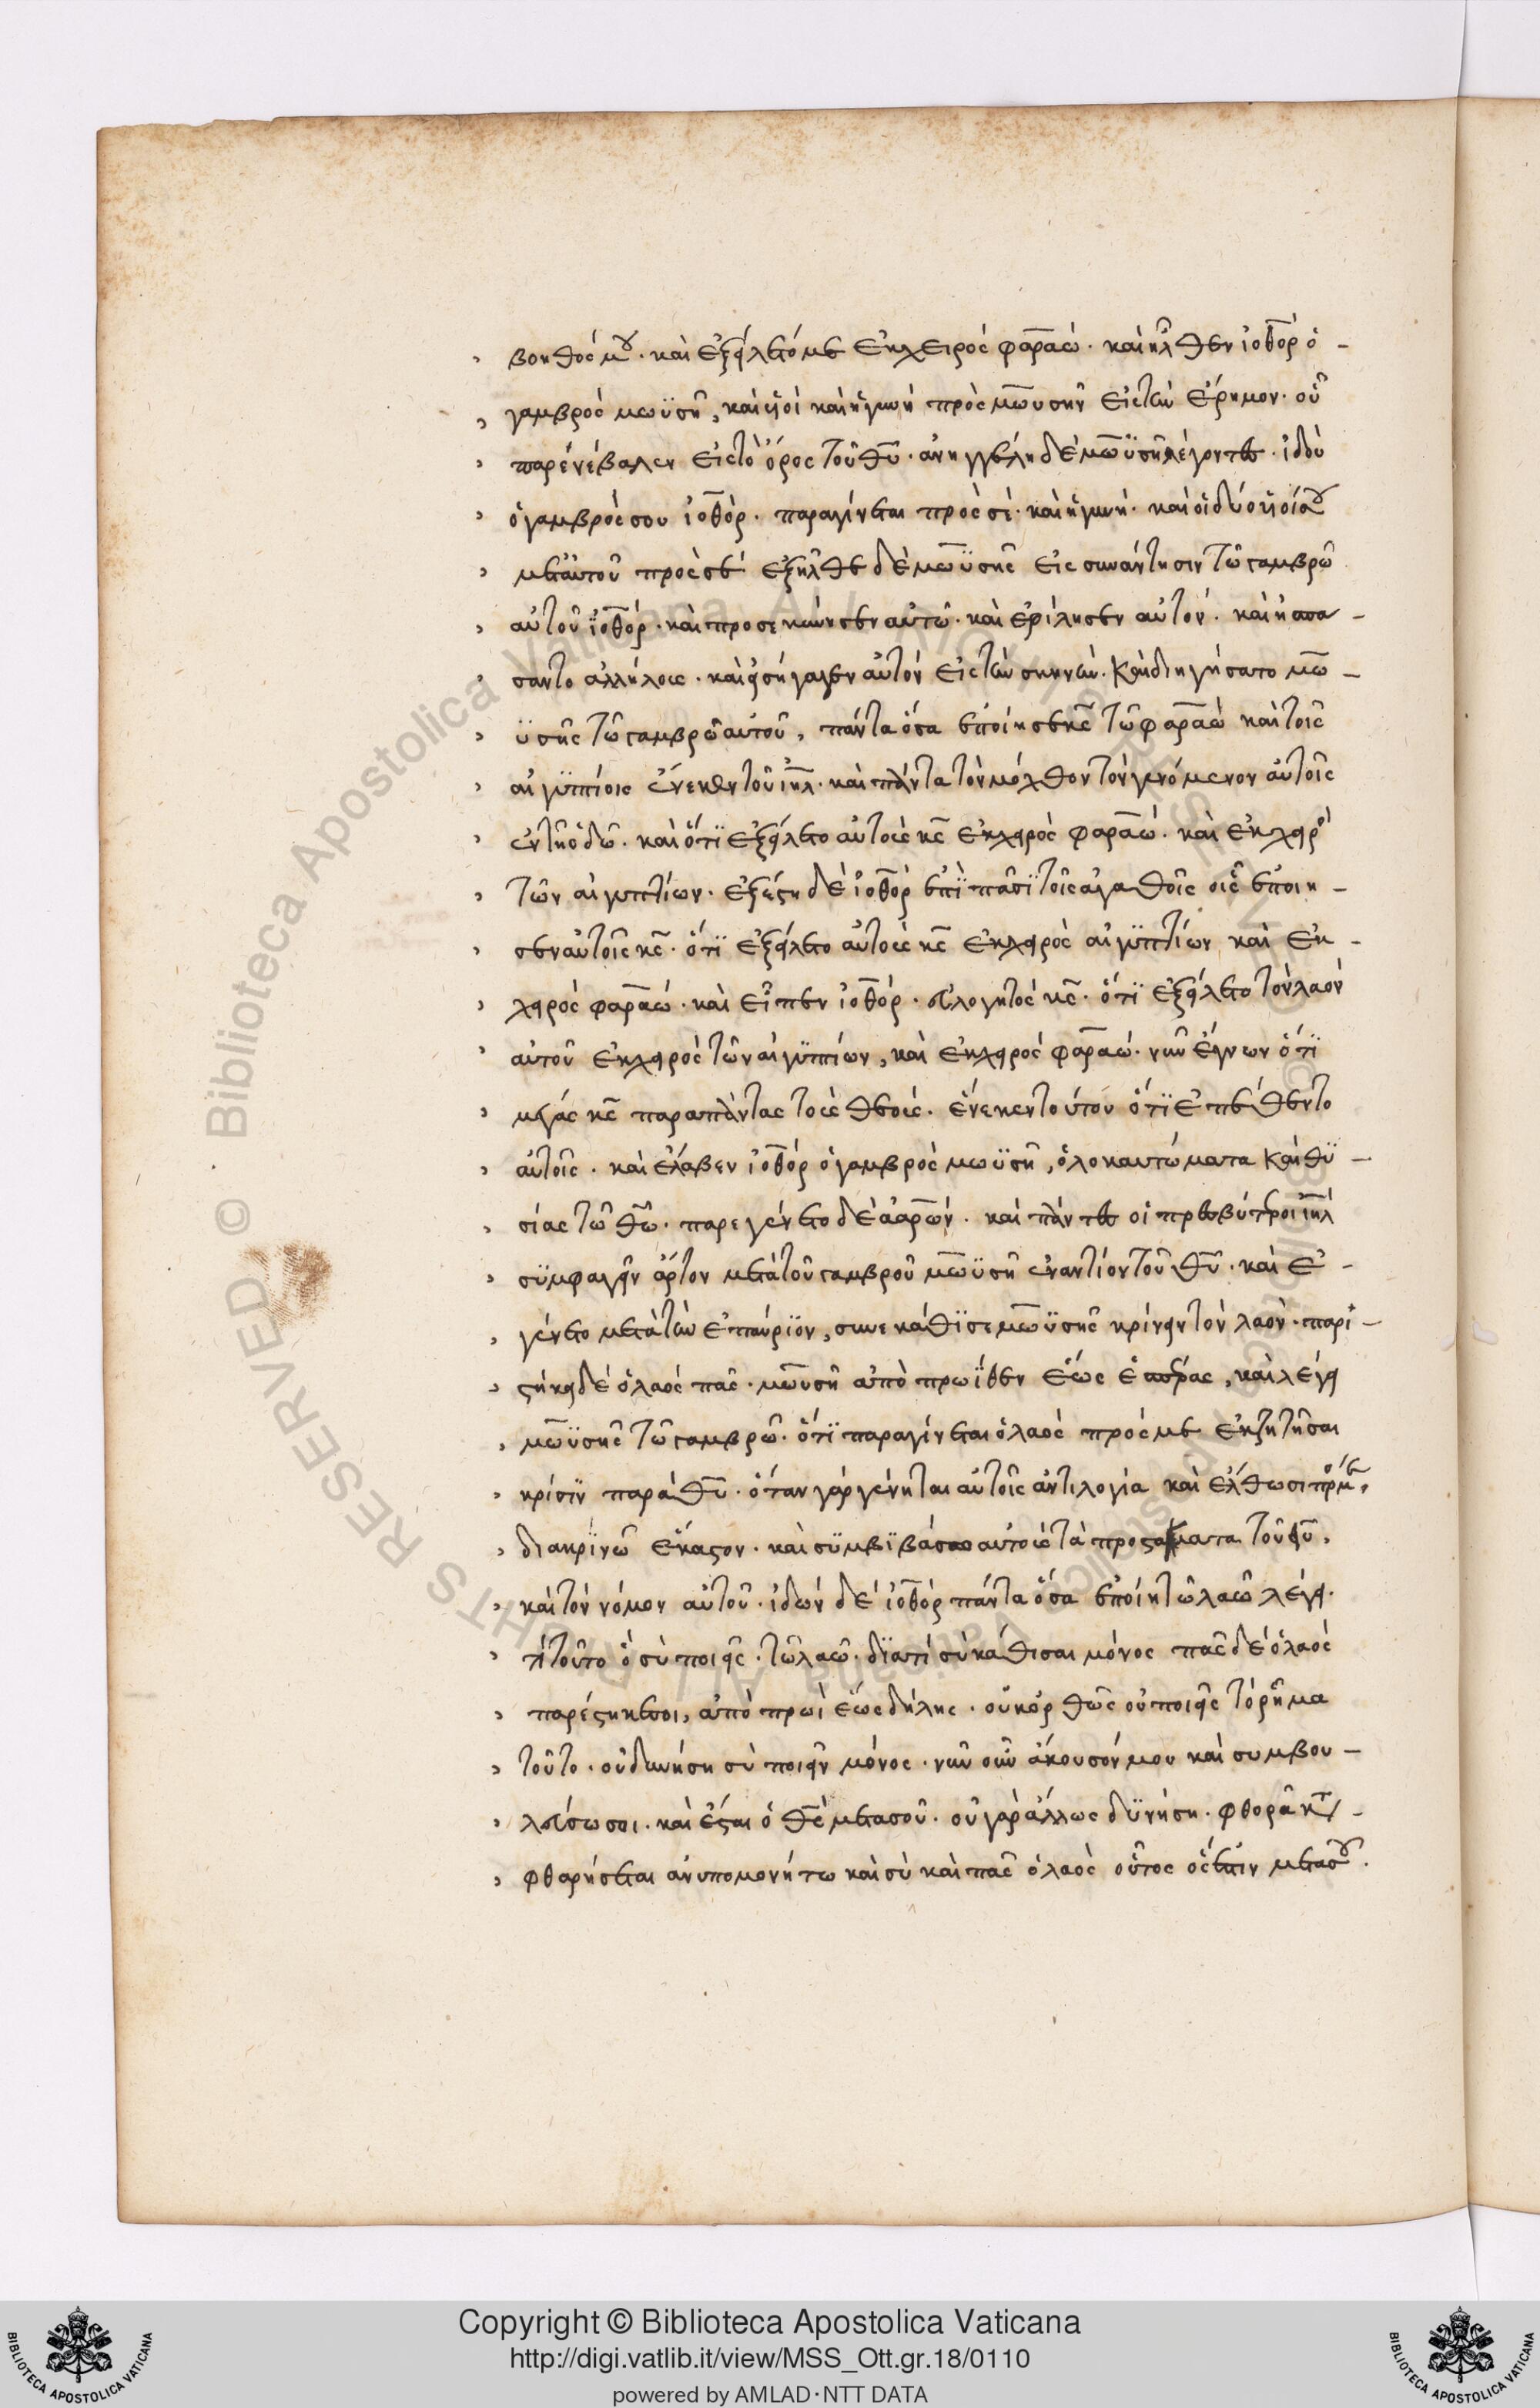 βοηθός μου. καὶ ἐξείλετό με ἐκ χειρὸς φαραώ. καὶ ἦλθεν ἰοθὸρ ὁ –
γαμβρὸς μωϋσῆ, καὶ υἱοὶ καὶ ἡ γυνὴ πρὸς μωυσῆν εἰς τὴν ἔρημον. οὗ
παρενέβαλεν εἰς τὸ ὄρος τοῦ θυ. ἀνηγγέλη δὲ μωϋσῆ λέγοντες. ἰδοὺ
ὁ γαμβρός σου ἰοθὸρ. παραγίνεται πρὸς σέ. καὶ ἡ γυνή. καὶ οἱ δύο υἱοί σου
μετ' αὐτοῦ πρὸς σέ ἐξῆλθε δὲ μωϋσῆς εἰς συνάντησιν τῶ γαμβρῶ
αὐτοῦ ἰοθόρ. καὶ προσεκύνησεν αὐτῶ. καὶ ἐφίλησεν αὐτόν. καὶ ἠσπα –
σαντο ἀλλήλους. καὶ εἰσήγαγεν αὐτὸν εἰς τὴν σκηνήν. καὶ διηγήσατο μω –
ϋσῆς τῶ γαμβρῶ αὐτοῦ, πάντα ὅσα ἐποίησε κς τῶ φαραώ καὶ τοῖς
αἰγυπτίοις ἕνεκεν τοῦ ιηλ. καὶ πάντα τὸν μόχθον τὸν γενόμενον αὐτοῖς
ἐν τῆ ὁδῶ. καὶ ὅτι ἐξείλετο αὐτοὺς κς ἐκ χειρὸς φαραώ. καὶ ἐκ χειρὸς
τῶν αἰγυπτίων. ἐξέστη δὲ ἰοθὸρ ἐπὶ πᾶσι τοῖς ἀγαθοῖς οἷς ἐποιη –
σεν αὐτοῖς κς. ὅτι ἐξείλετο αὐτοὺς κς ἐκ χειρὸς αἰγυπτίων καὶ ἐκ –
χειρὸς φαραώ. καὶ εἶπεν ἰοθόρ. εὐλογητὸς κς. ὅτι ἐξείλετο τὸν λαὸν
αὐτοῦ ἐκ χειρὸς τῶν αἰγυπτίων, καὶ ἐκ χειρὸς φαραώ. νῦν ἔγνων ὅτι
μέγας κς παρὰ πάντας τοὺς θεούς. ἕνεκεν τούτου ὅτι ἐπέθεντο
αὐτοῖς. καὶ ἔλαβεν ἰοθόρ ὁ γαμβρὸς μωϋσῆ, ὁλοκαυτώματα καὶ θυ –
σίας τῶ θω. παρεγένετο δὲ ἀαρών. καὶ πάντες οἱ πρεσβύτεροι ιηλ
συμφαγεῖν ἄρτον μετὰ τοῦ γαμβροῦ μωϋσῆ ἐναντίον τοῦ θυ. καὶ ἐ –
γένετο μετὰ τὴν ἐπαύριον, συνεκάθισε μωϋσῆς κρίνειν τὸν λαόν. παρι –
στήκει δὲ ὁ λαὸς πᾶς. μωυσῆ ἀπὸ πρωΐθεν ἕως ἑσπέρας, καὶ λέγει
μωϋσῆς τῶ γαμβρῶ. ὅτι παραγίνεται ὁ λαὸς πρός με ἐκζητῆσαι
κρίσιν παρὰ θυ. ὅταν γὰρ γένηται αὐτοῖς ἀντιλογία καὶ ἔλθωσι πρός με,
διακρινῶ ἕκαστον. καὶ συμβιβάσω αὐτοὺς τὰ προστάγματα τοῦ θυ,
καὶ τὸν νόμον αὐτοῦ. ἰδὼν δὲ ἰοθὸρ πάντα ὅσα ἐποίει τῶ λαῶ λέγει.
τί τοῦτο ὃ σὺ ποιεῖς. τῶ λαῶ. διατί σὺ κάθισαι μόνος πᾶς δὲ ὁ λαὸς
παρέστηκέσοι, ἀπὸ πρωὶ ἕως δήλης. οὐκ ὀρθῶς οὐ ποιεῖς τὸ ῥῆμα
τοῦτο. οὐ δυνήση σὺ ποιεῖν μόνος. νῦν οὖν ἄκουσόν μου καὶ συμβου –
λεύσω σοι. καὶ ἔσται ὁ θς μετὰ σοῦ. οὐ γὰρ ἄλλως δυνήση. φθορᾶ κατα –
φθαρήσεται ἀνυπομονήτω καὶ σὺ καὶ πᾶς ὁ λαὸς οὗτος ὅς ἐστιν μετὰ σοῦ.
Copyright © Biblioteca Apostolica Vaticana
http://digi.vatlib.it/view/MSS_Ott.gr.18/0110
powered by AMLAD·NTT DATA